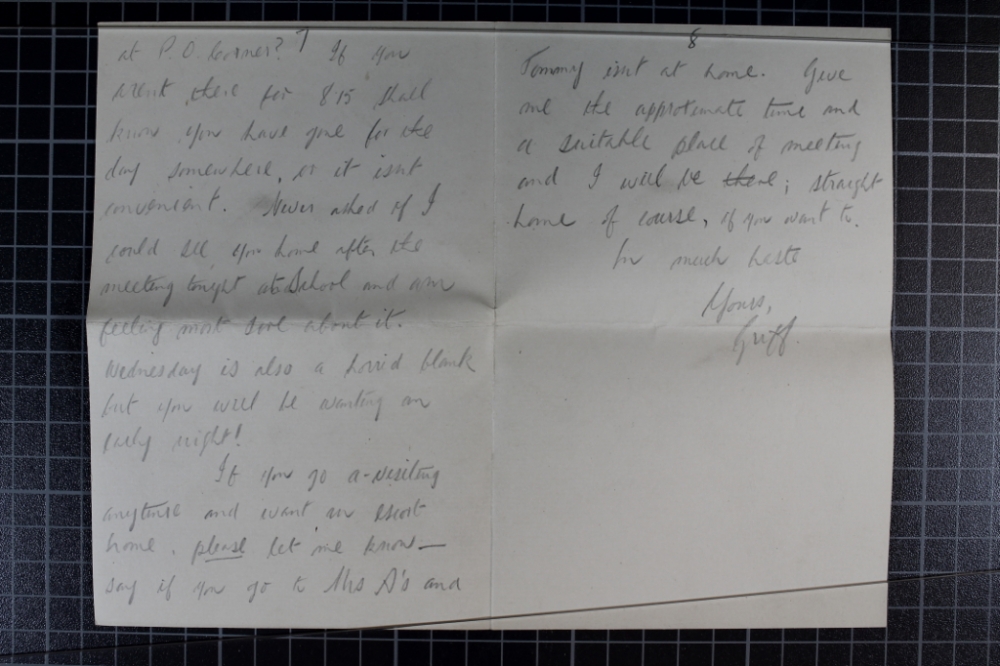 7
at P.O. Corner? If you
arent there for 8.15 shall
know you have gone for the
day somewhere, or it isnt
convenient. Never asked if I
could see you home after the
meeting tonight at School and am
feeling most sore about it.
Wednesday is also a horrid blank
but you will be wanting an
early night!
If you go a-visiting
anytime and want an escort
home, please let me know—
say if you go to Mrs A's and
8
Tommy isnt at home. Give
me the approximate time and
a suitable place of meeting
and I will be there; straight
home of course, if you want to.
In much haste
Yours,
Griff.